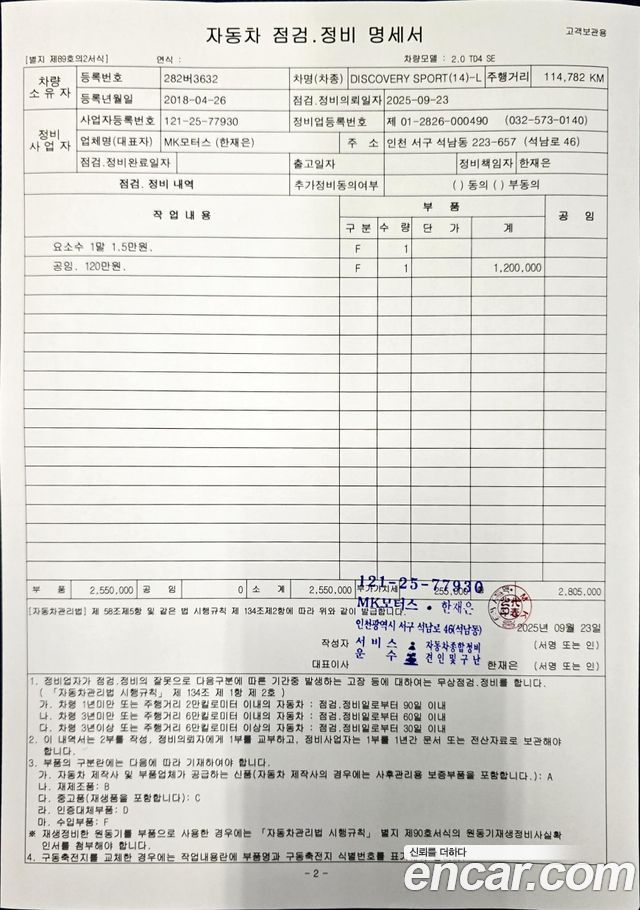 자동차 점검.정비 명세서
고객보관용
[별지 제89호의2서식] 연식 : 차량모델 : 2.0 TD4 SE
차량 소유자 등록번호 282버3632 차명(차종) DISCOVERY SPORT(14)-L 주행거리 114,782 KM
등록년월일 2018-04-26 점검.정비의뢰일자 2025-09-23
정비 사업자 사업자등록번호 121-25-77930 정비업등록번호 제 01-2826-000490 (032-573-0140)
업체명(대표자) MK모터스 (한재은) 주 소 인천 서구 석남동 223-657 (석남로 46)
점검.정비완료일자 출고일자 정비책임자 한재은
점검. 정비 내역 추가정비동의여부 ( ) 동의 ( ) 부동의
작 업 내 용 부 품 공 임
구 분 수 량 단 가 계
요소수 1말 1.5만원. F 1
공임. 120만원. F 1 1,200,000
부 품 2,550,000 공 임 0 소 계 2,550,000 부가가치세 255,000 2,805,000
121-25-77930
MK모터스 • 한재은
인천광역시 서구 석남로 46(석남동)
서비스 자동차종합정비
운수 견인및구난
[자동차관리법] 제 58조제5항 및 같은 법 시행규칙 제 134조제2항에 따라 위와 같이 발급합니다.
2025년 09월 23일
작성자 (서명 또는 인)
대표이사 한재은 (서명 또는 인)
1. 정비업자가 점검.정비의 잘못으로 다음구분에 따른 기간중 발생하는 고장 등에 대하여는 무상점검.정비를 합니다.
( 「자동차관리법 시행규칙」 제 134조 제 1항 제 2호 )
가. 차령 1년미만 또는 주행거리 2만킬로미터 이내의 자동차 : 점검.정비일로부터 90일 이내
나. 차령 3년미만 또는 주행거리 6만킬로미터 이내의 자동차 : 점검.정비일로부터 60일 이내
다. 차령 3년이상 또는 주행거리 6만킬로미터 이상의 자동차 : 점검.정비일로부터 30일 이내
2. 이 내역서는 2부를 작성, 정비의뢰자에게 1부를 교부하고, 정비사업자는 1부를 1년간 문서 또는 전산자료로 보관해야
합니다.
3. 부품의 구분란에는 다음에 따라 기재하여야 합니다.
가. 자동차 제작사 및 부품업체가 공급하는 신품(자동차 제작사의 경우에는 사후관리용 보증부품을 포함합니다.): A
나. 재제조품: B
다. 중고품(재생품을 포함합니다.): C
라. 인증대체부품: D
마. 수입부품: F
※ 재생정비한 원동기를 부품으로 사용한 경우에는 「자동차관리법 시행규칙」 별지 제90호서식의 원동기재생정비사실확
인서를 첨부해야 합니다.
4. 구동축전지를 교체한 경우에는 작업내용란에 부품명과 구동축전지 식별번호를 표기
신뢰를 더하다
encar.com
- 2 -